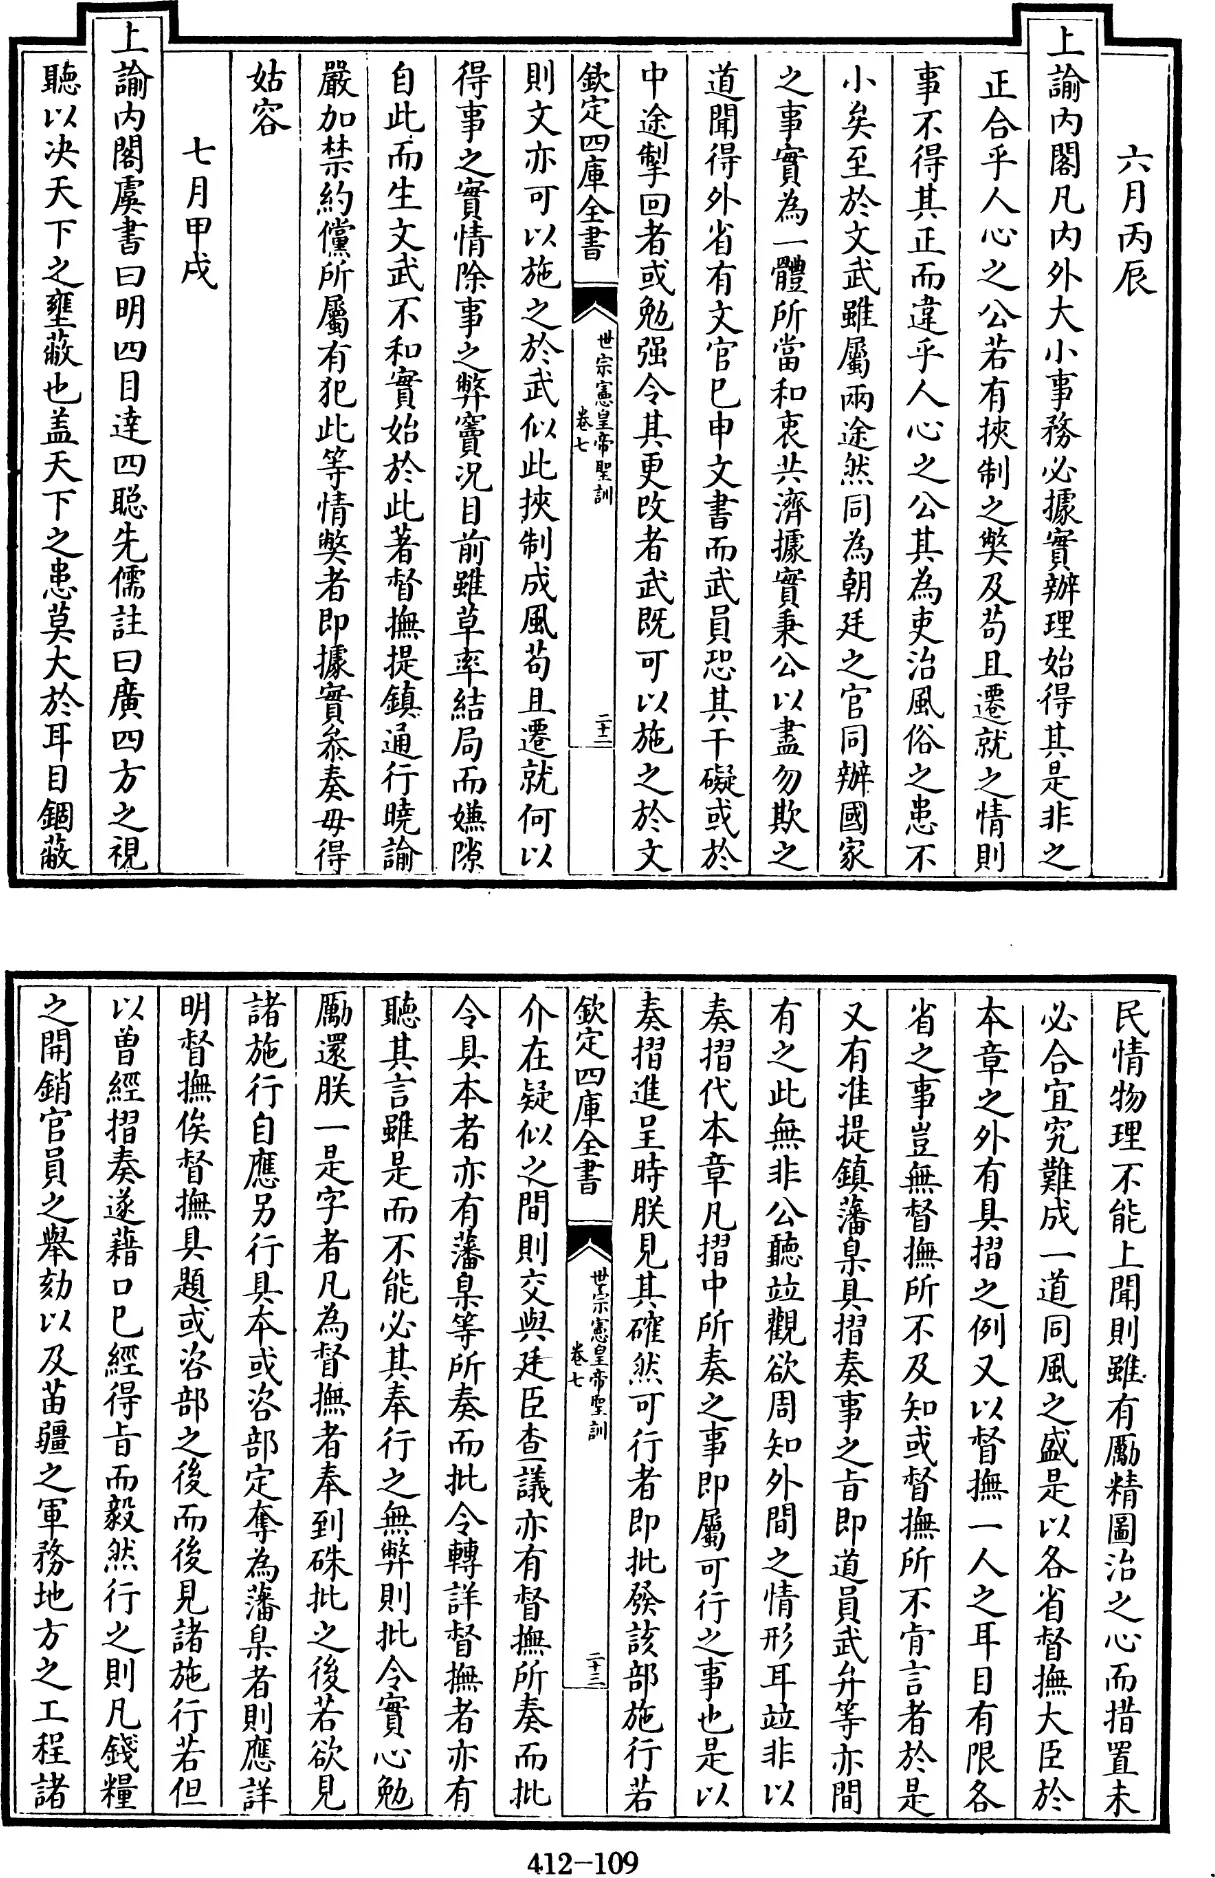 六月丙辰
上諭內閣凡內外大小事務必據實辦理始得其是非之
正合乎人心之公若有挾制之弊及苟且遷就之情則
事不得其正而違乎人心之公其為吏治風俗之患不
小矣至於文武雖屬兩途然同為朝廷之官同辦國家
之事實為一體所當和衷共濟據實秉公以盡勿欺之
道聞得外省有文官已申文書而武員恐其干礙或於
中途掣回者或勉强令其更改者武既可以施之於文
欽定四庫全書
世宗憲皇帝聖訓
卷七
二十二
則文亦可以施之於武似此挾制成風苟且遷就何以
得事之實情除事之弊竇况目前雖草率結局而嫌隙
自此而生文武不和實始於此著督撫提鎮通行曉諭
嚴加禁約儻所屬有犯此等情獘者即據實叅奏毋得
姑容
七月甲戌
上諭內閣虞書曰明四目達四聰先儒註曰廣四方之視
聽以決天下之壅蔽也蓋天下之患莫大於耳目錮蔽
民情物理不能上聞則雖有勵精圖治之心而措置未
必合宜究難成一道同風之盛是以各省督撫大臣於
本章之外有具摺之例又以督撫一人之耳目有限各
省之事豈無督撫所不及知或督撫所不肯言者於是
又有准提鎮藩臬具摺奏事之旨即道員武弁等亦間
有之此無非公聽竝觀欲周知外間之情形耳竝非以
奏摺代本章凡摺中所奏之事即屬可行之事也是以
奏摺進呈時朕見其確然可行者即批發該部施行若
欽定四庫全書
世宗憲皇帝聖訓
卷七
二十三
介在疑似之間則交與廷臣查議亦有督撫所奏而批
令具本者亦有藩臬等所奏而批令轉詳督撫者亦有
聽其言雖是而不能必其奉行之無弊則批令實心勉
勵還朕一是字者凡為督撫者奉到硃批之後若欲見
諸施行自應另行具本或咨部定奪為藩臬者則應詳
明督撫俟督撫具題或咨部之後而後見諸施行若但
以曾經摺奏遂藉口已經得旨而毅然行之則凡錢糧
之開銷官員之舉劾以及苗疆之軍務地方之工程諸
412-109